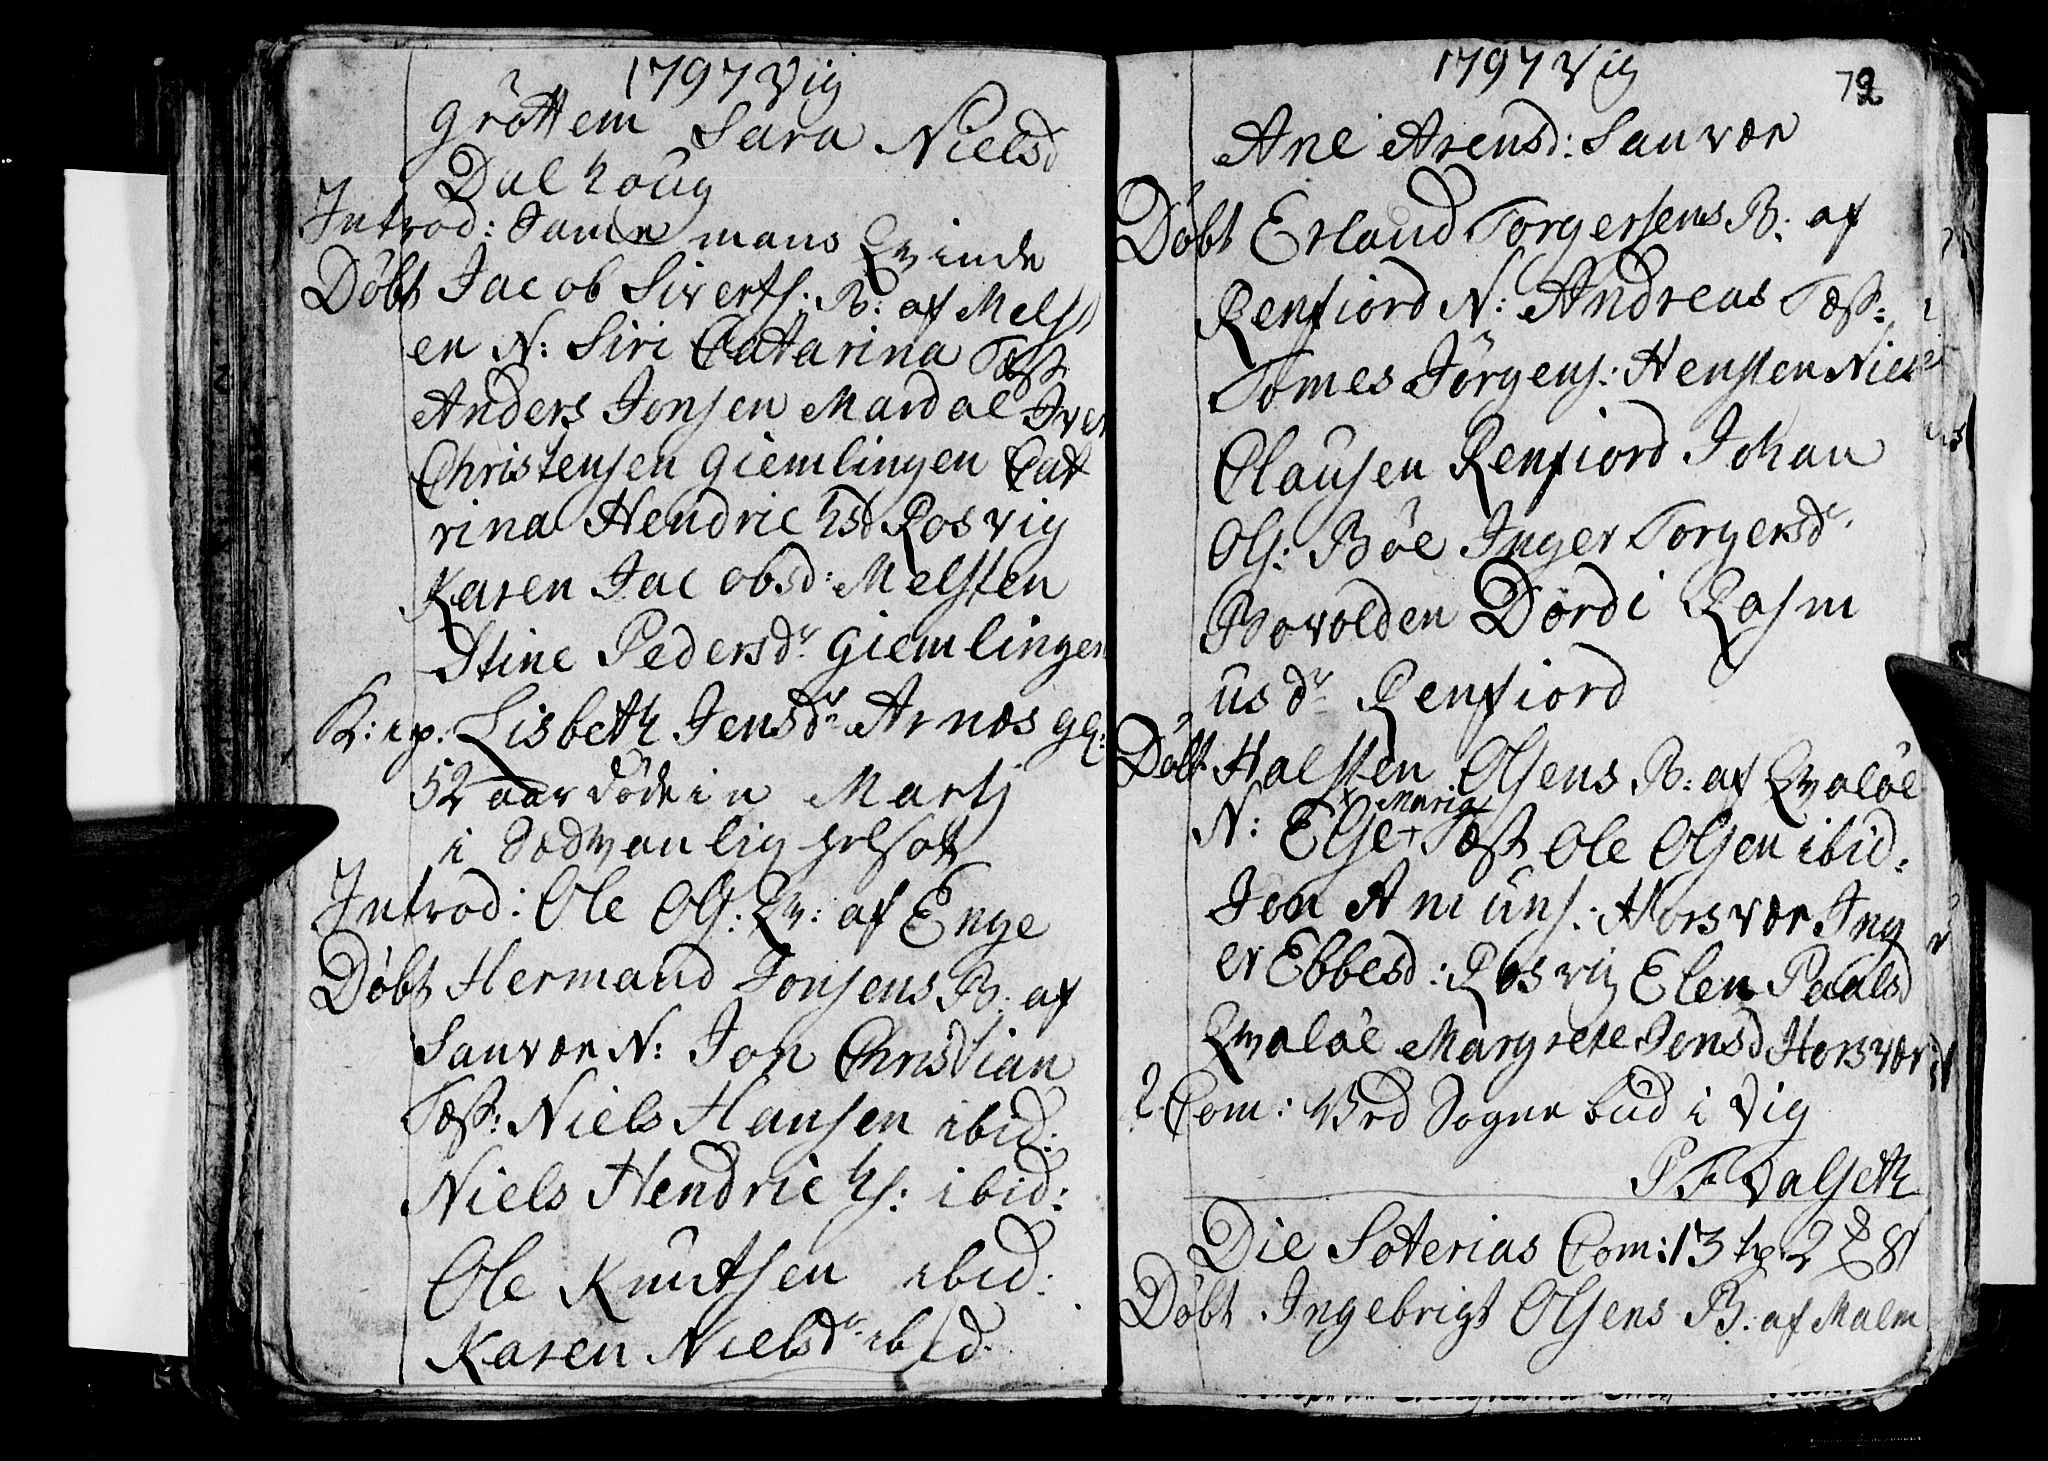 1797 Vig
Grøttem Sara Nielsd
Dalhoug
Introd: Samme mans Qvinde
Døbt Jacob Siverts: B: af Melst
en N: Siri Catarina Tæst
Anders Jonsen Mardal Iver
Christensen Giemlingen Cat
rina Hendrichsd Rosvig
Karen Jacobsd: Melsten
Stine Pedersdr Giemlingen
K: ep. Lisbeth Jensdr Arnæs gl:
52 aar døde in Martj
i Sædvanlig
Introd: Ole Ols: Qv: af Enge
Døbt Hermand Jonsens B: af
Sanvær N: Jon Christian
Tæst: Niels Hansen ibid:
Niels Hendrichs: ibid:
Ole Knutsen ibid:
Karen Nielsdr ibid.
1797 Vig
72
Ane Arensd: Sanvær
Døbt Erland Torgersens B: af
Renfiord N: Andreas Tæst:
Tomes Jørgens: Hensten Niels
Clausen Renfiord Johan
Ols: Bøe Inger Torgersdr
Bovolden Dordi Rasm
usdr Renfiord
Døbt Halsten Olsens B: af Qvaløe
Marig
N: Else + Tæst Ole Olsen ibid:
Jon Amuns: Horsvær Ing
er Ebbesd: Rosvig Elen Paalsd
Qvaløe Margrete Jensd Horsvær
Com: Ved Sognebud i Vig
P F Valseth
Die Soterias Com: 13 tp 2
Døbt Ingebrigt Olsens B: af Malm